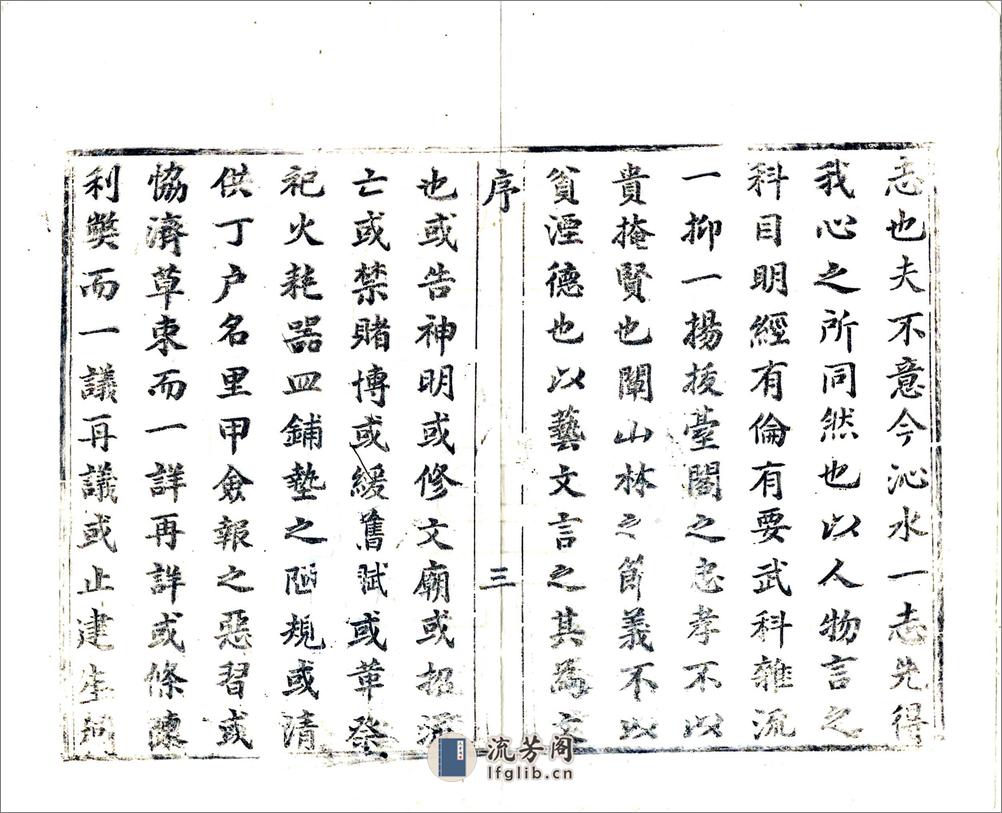 志也夫不意今沁水一志先得
我心之所同然也以人物言之
科目明經有倫有要武科雜流
一抑一揚拔臺閣之忠孝不以
貴掩賢也闡山林之節義不以
貧湮德也以藝文言之其爲文
序
三
也或告神明或修文廟或招流
亡或禁賭博或緩舊賦或革祭
祀火耗器皿鋪墊之陋規或清
供丁户名里甲僉報之惡習或
恊濟草束而一詳再詳或條陳
利獘而一議再議或止建生祠
流芳阁
lfglib.cn